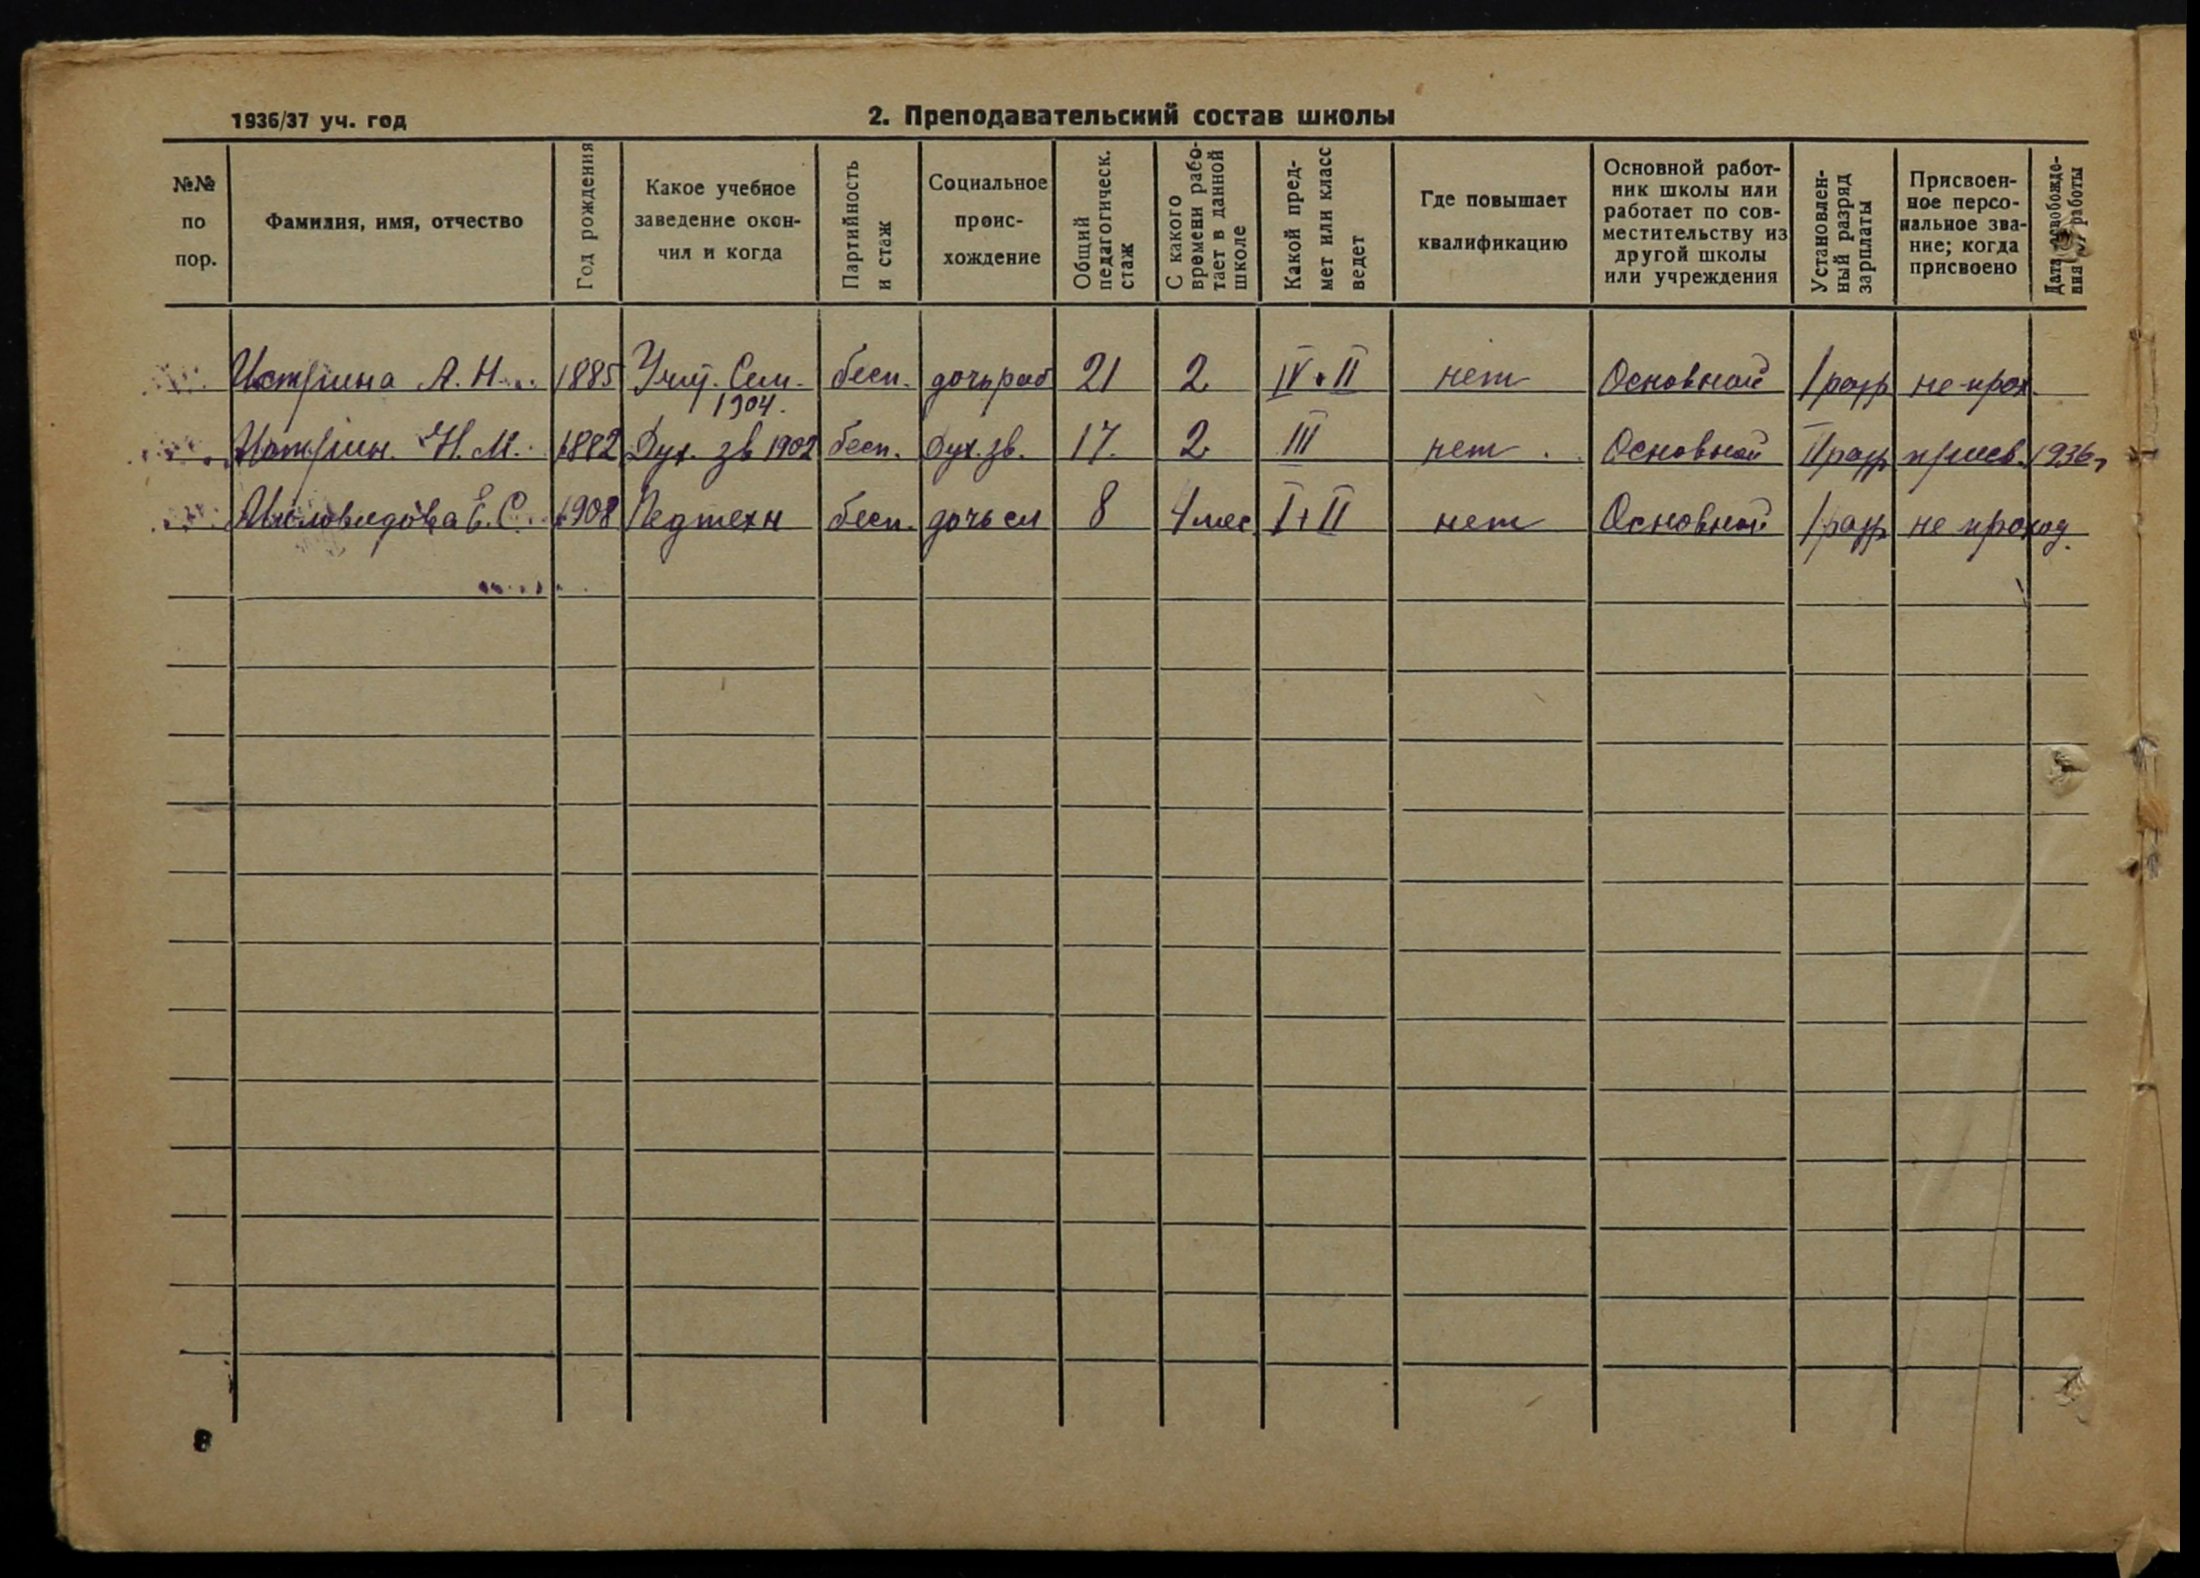 1936/37 уч. год
2. Преподавательский состав школы
№№ по пор.
Фамилия, имя, отчество
Год рождения
Какое учебное заведение окончил и когда
Партийность и стаж
Социальное происхождение
Общий педагогическ. стаж
С какого времени работает в данной школе
Какой предмет или класс ведет
Где повышает квалификацию
Основной работник школы или работает по совместительству из другой школы или учреждения
Установленный разряд зарплаты
Присвоенное персональное звание; когда присвоено
Дата освобождения от работы
Истрина А. Н. 1885 Учит. Сем. 1904. бесп. дочь раб 21 2 IV + II нет Основной I разр не прох.
Истрин. Н. М. 1882 Дух. зв 1902 бесп. Дух. зв. 17. 2 III нет Основной II разр присв. 1936 г
Миловидова Е. С. 1908 Педтехн бесп. дочь сл 8 4 мес I + II нет Основной I разр не проход.
8